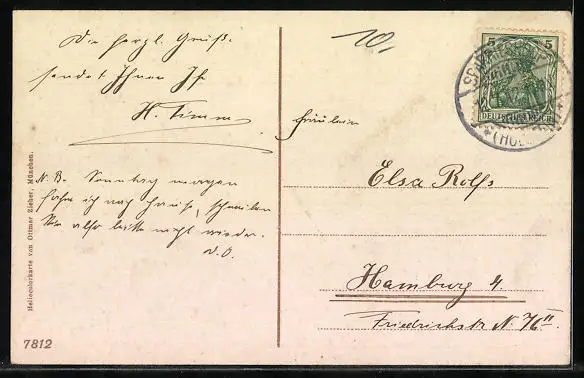 Die herzl. Grüße
sendet Ihnen Ihr
H. Timm
N.B. Sonntag morgen
fahre ich nach Hause, schreiben
Sie also bitte nicht wieder.
d.O.
10,
Fräulein
Elsa Rolfs
Hamburg 4.
Friedrichstr N. 76 II
5 5
DEUTSCHES REICH
(HOL
Heliocolorkarte von Ottmar Zieher, München.
7812